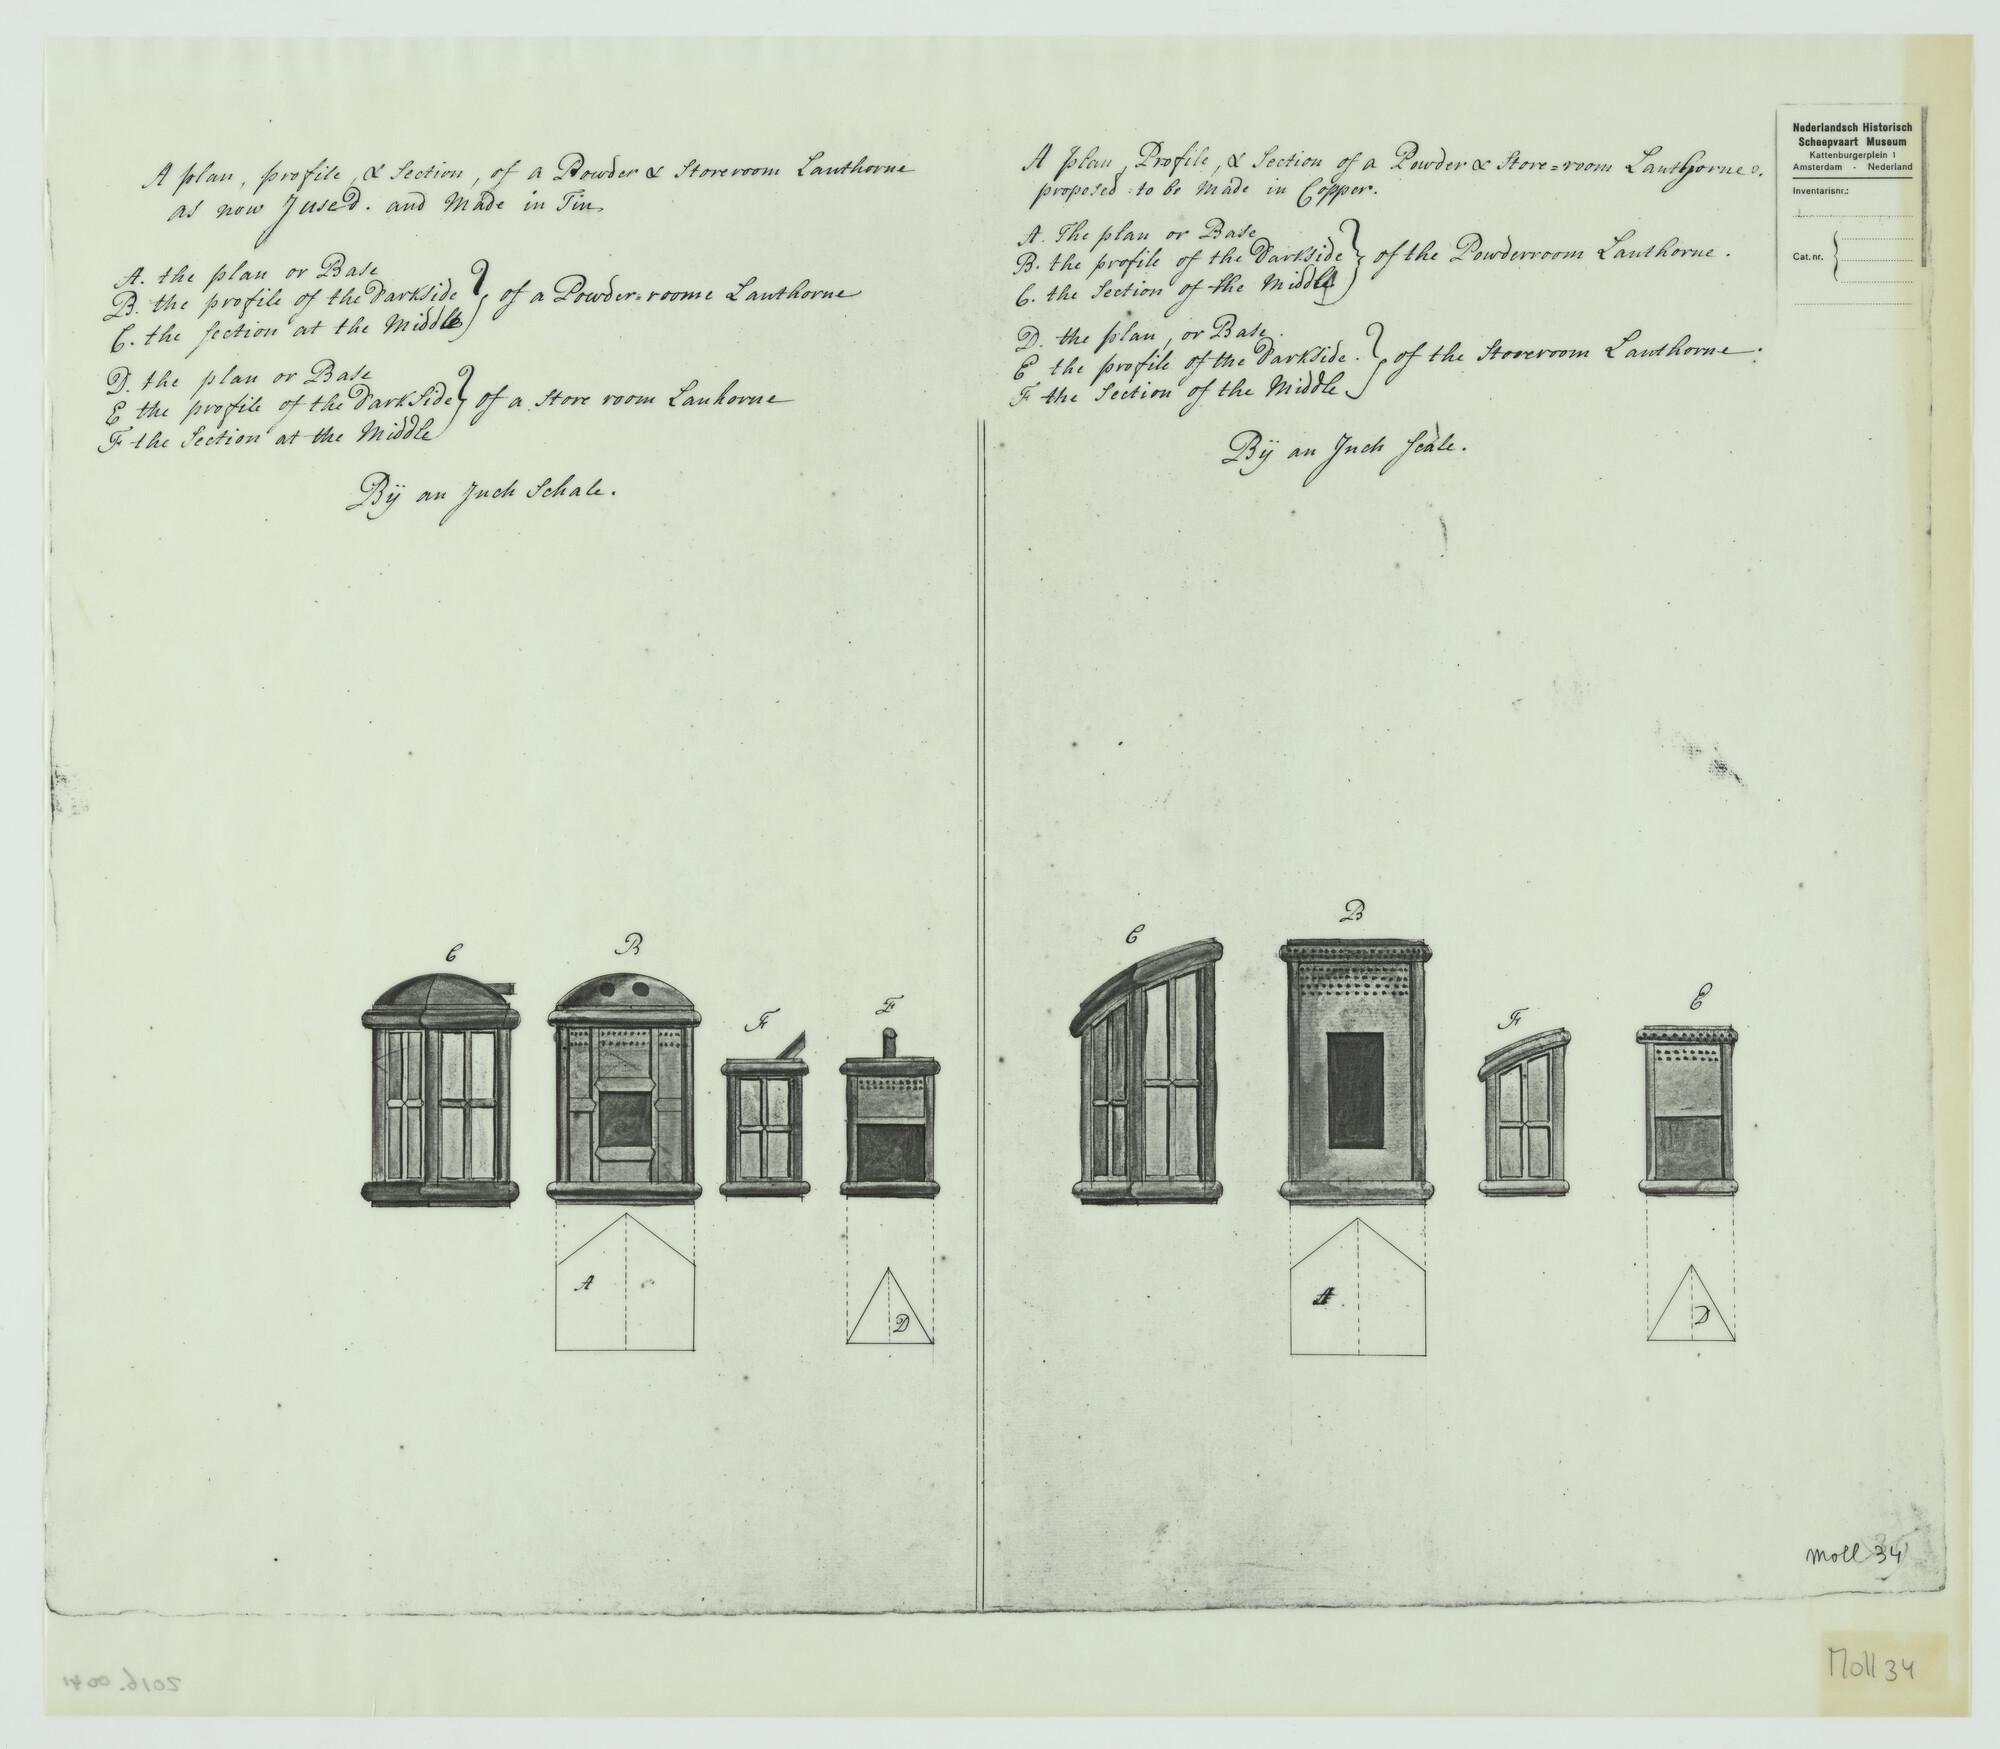 A plan, profile, & Section, of a Powder & Storeroom Lanthorne
as now JuseD. and Made in Tin
A. the plan or Base
B. the profile of the Darkside
C. the section at the Middle
} of a Powder=roome Lanthorne
D. the plan or Base
E the profile of the DarkSide
F the Section at the Middle
} of a Store room Lanhorne
Bij an Inch Schale.
C
B
F
E
A
D
A plan, Profile, & Section of a Powder & Store=room Lanthorne.
proposed to be Made in Copper.
A. The plan or Base
B. the profile of the Darkside
C. the Section of the Middle
} of the Powderroom Lanthorne.
D. the plan, or Base.
E the profile of the DarkSide.
F the Section of the Middle
} of the Storeroom Lanthorne.
Bij an Inch Scale.
C
B
F
E
A.
D
Nederlandsch Historisch
Scheepvaart Museum
Kattenburgerplein 1
Amsterdam - Nederland
Inventarisnr.:
Cat.nr. {
Moll 34
Moll 34
2016.0041